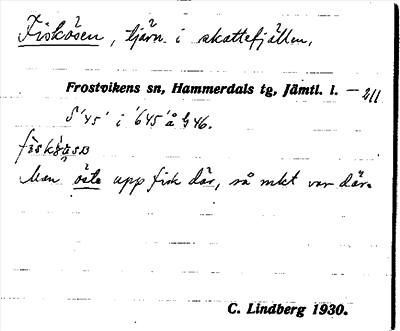 Fiskösen, tjärn i skattefjällen,
Frostvikens sn, Hammerdals tg, Jämtl. l. – 211
5'45' i '645' å g 46.
Man öste upp fisk där, så mkt var där.
C. Lindberg 1930.